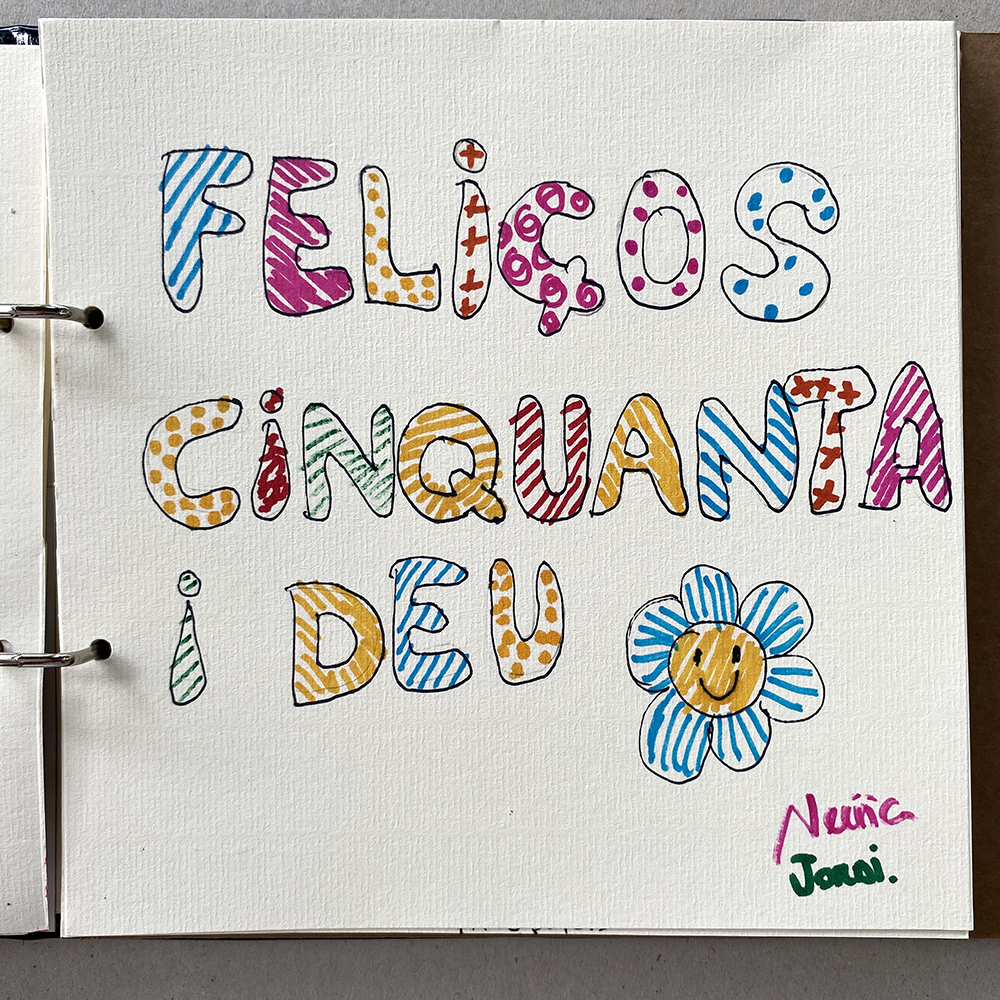 FELiÇOS
CiNQUANTA
i DEU
Núria
Jordi.